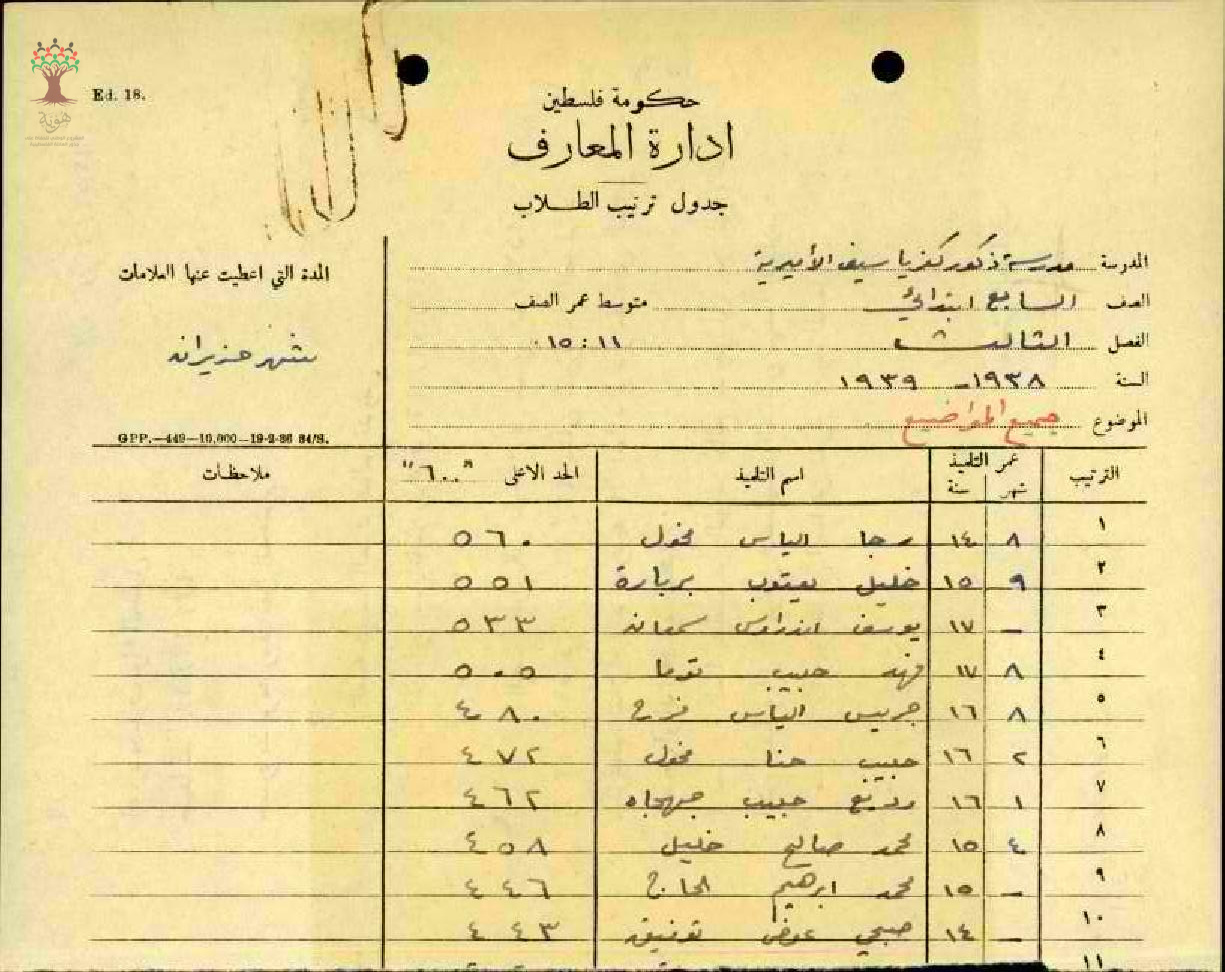 Ed. 18.
هوية
حكومة فلسطين
ادارة المعارف
جدول ترتيب الطلاب
المدرسة مدرسة ذكور كفرياسيف الأميرية
الصف السابع ابتدائي متوسط عمر الصف
الفصل الثالث ١٥:١١
السنة ١٩٣٨ – ١٩٣٩
الموضوع جميع المواضيع
المدة التي اعطيت عنها العلامات
شهر حزيران
GPP.—449—10,000—19-2-36 84/S.
الترتيب عمر التلميذ شهر سنة اسم التلميذ الحد الاعلى "٦٠٠" ملاحظات
١ ٨ ١٤ رجا الياس مخول ٥٦٠
٢ ٩ ١٥ خليل يعقوب بربارة ٥٥١
٣ – ١٧ يوسف اندراوس سمعان ٥٣٣
٤ ٨ ١٧ فهد حبيب توما ٥٠٥
٥ ٨ ١٦ جريس الياس فرح ٤٨٠
٦ ٢ ١٦ حبيب حنا مخول ٤٧٢
٧ ١ ١٦ وديع حبيب جهجاه ٤٦٢
٨ ٤ ١٥ محمد صالح خليل ٤٥٨
٩ – ١٥ محمد ابرهيم الحاج ٤٤٦
١٠ – ١٤ صبحي عوض توفيق ٤٤٣
١١